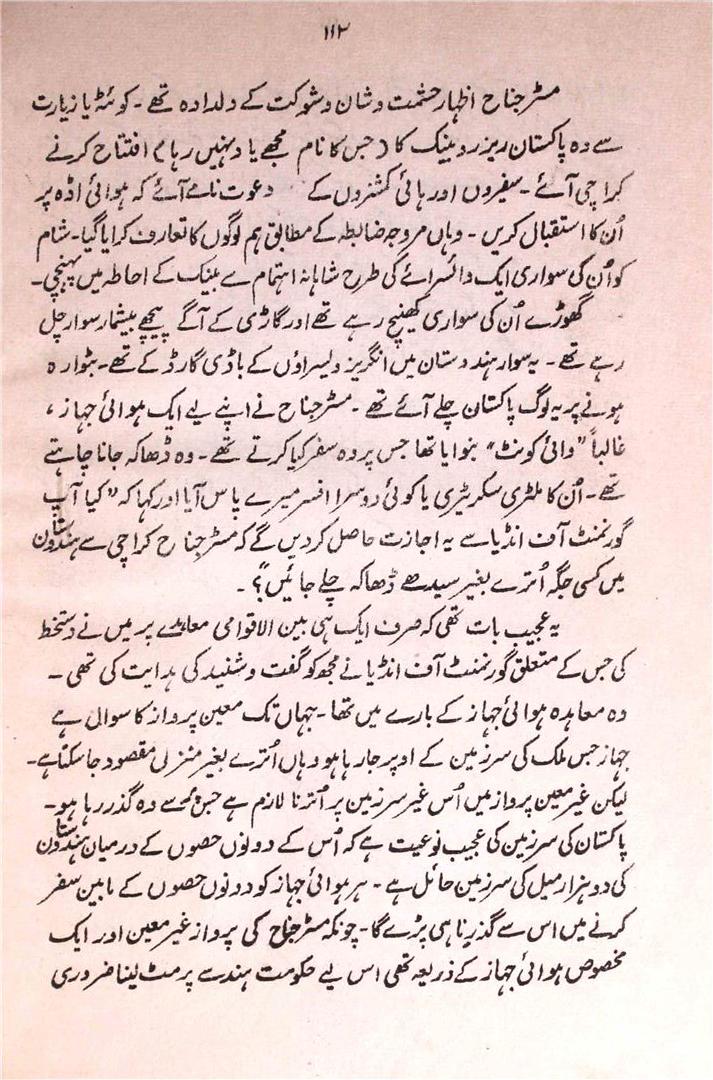 ۱۱۲
مسٹر جناح اظہار حشمت و شان و شوکت کے دلدادہ تھے ۔ کوئٹہ یا زیارت
سے وہ پاکستان ریزرو بینک کا (جس کا نام مجھے یاد نہیں رہا) افتتاح کرنے
کراچی آئے ۔ سفیروں اور ہائی کمشنروں کے دعوت نامے آئے کہ ہوائی اڈہ پر
اُن کا استقبال کریں ۔ وہاں مروجہ ضابطہ کے مطابق ہم لوگوں کا تعارف کرایا گیا ۔ شام
کو اُن کی سواری ایک وائسرائے کی طرح شاہانہ اہتمام سے بینک کے احاطہ میں پہنچی ۔
گھوڑے اُن کی سواری کھینچ رہے تھے اور گاڑی کے آگے پیچھے بیشمار سوار چل
رہے تھے ۔ یہ سوار ہندوستان میں انگریز ویسراؤں کے باڈی گارڈ کے تھے ۔ بٹوارہ
ہونے پر یہ لوگ پاکستان چلے آئے تھے ۔ مسٹر جناح نے اپنے لیے ایک ہوائی جہاز ،
غالباً ”وائی کونٹ“ بنوایا تھا جس پر وہ سفر کیا کرتے تھے ۔ وہ ڈھاکہ جانا چاہتے
تھے ۔ اُن کا ملٹری سکریٹری یا کوئی دوسرا افسر میرے پاس آیا اور کہا کہ ”کیا آپ
گورنمنٹ آف انڈیا سے یہ اجازت حاصل کر دیں گے کہ مسٹر جناح کراچی سے ہندوستان
میں کسی جگہ اُترے بغیر سیدھے ڈھاکہ چلے جائیں“؟ ۔
یہ عجیب بات تھی کہ صرف ایک ہی بین الاقوامی معاہدے پر میں نے دستخط
کی جس کے متعلق گورنمنٹ آف انڈیا نے مجھ کو گفت و شنید کی ہدایت کی تھی ۔
وہ معاہدہ ہوائی جہاز کے بارے میں تھا ۔ جہاں تک معین پرواز کا سوال ہے
جہاز جس ملک کی سرزمین کے اوپر جا رہا ہو وہاں اُترے بغیر منزل مقصود جا سکتا ہے ۔
لیکن غیر معین پرواز میں اُس غیر سرزمین پر اُترنا لازم ہے جس سے وہ گذر رہا ہو ۔
پاکستان کی سرزمین کی عجیب نوعیت ہے کہ اُس کے دونوں حصوں کے درمیان ہندوستان
کی دو ہزار میل کی سرزمین حائل ہے ۔ ہر ہوائی جہاز کو دونوں حصوں کے مابین سفر
کرنے میں اس سے گذرنا ہی پڑے گا ۔ چونکہ مسٹر جناح کی پرواز غیر معین اور ایک
مخصوص ہوائی جہاز کے ذریعہ تھی اس لیے حکومت ہند سے پرمٹ لینا ضروری